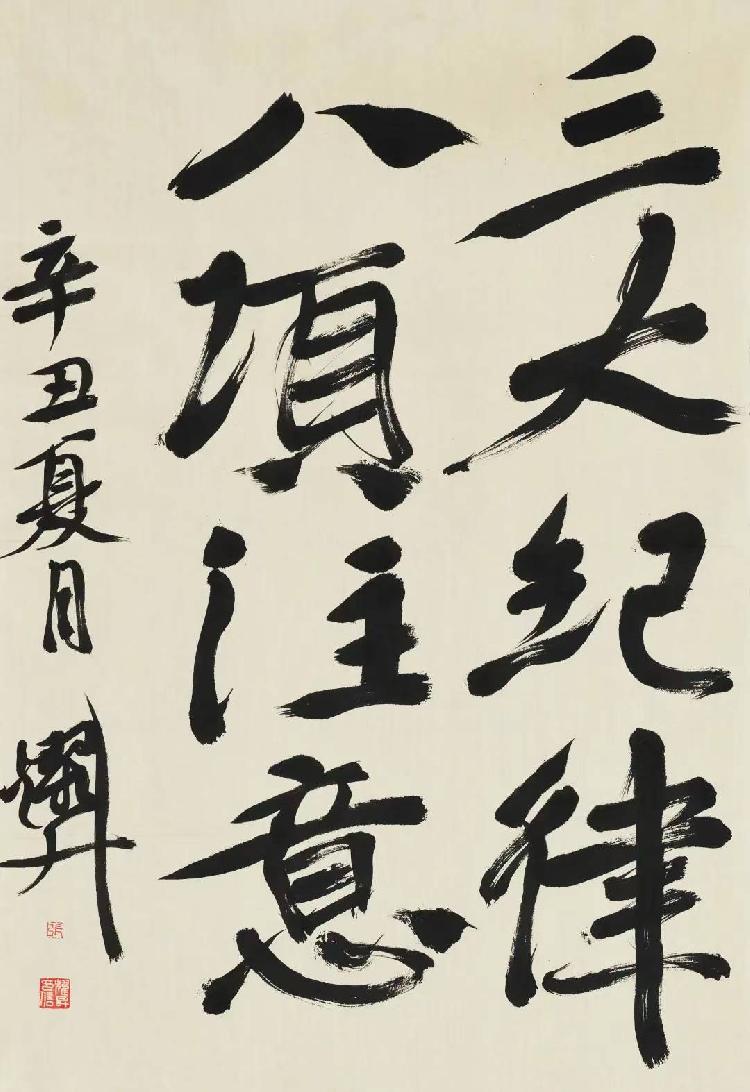 三大纪律
八项注意
辛丑夏月